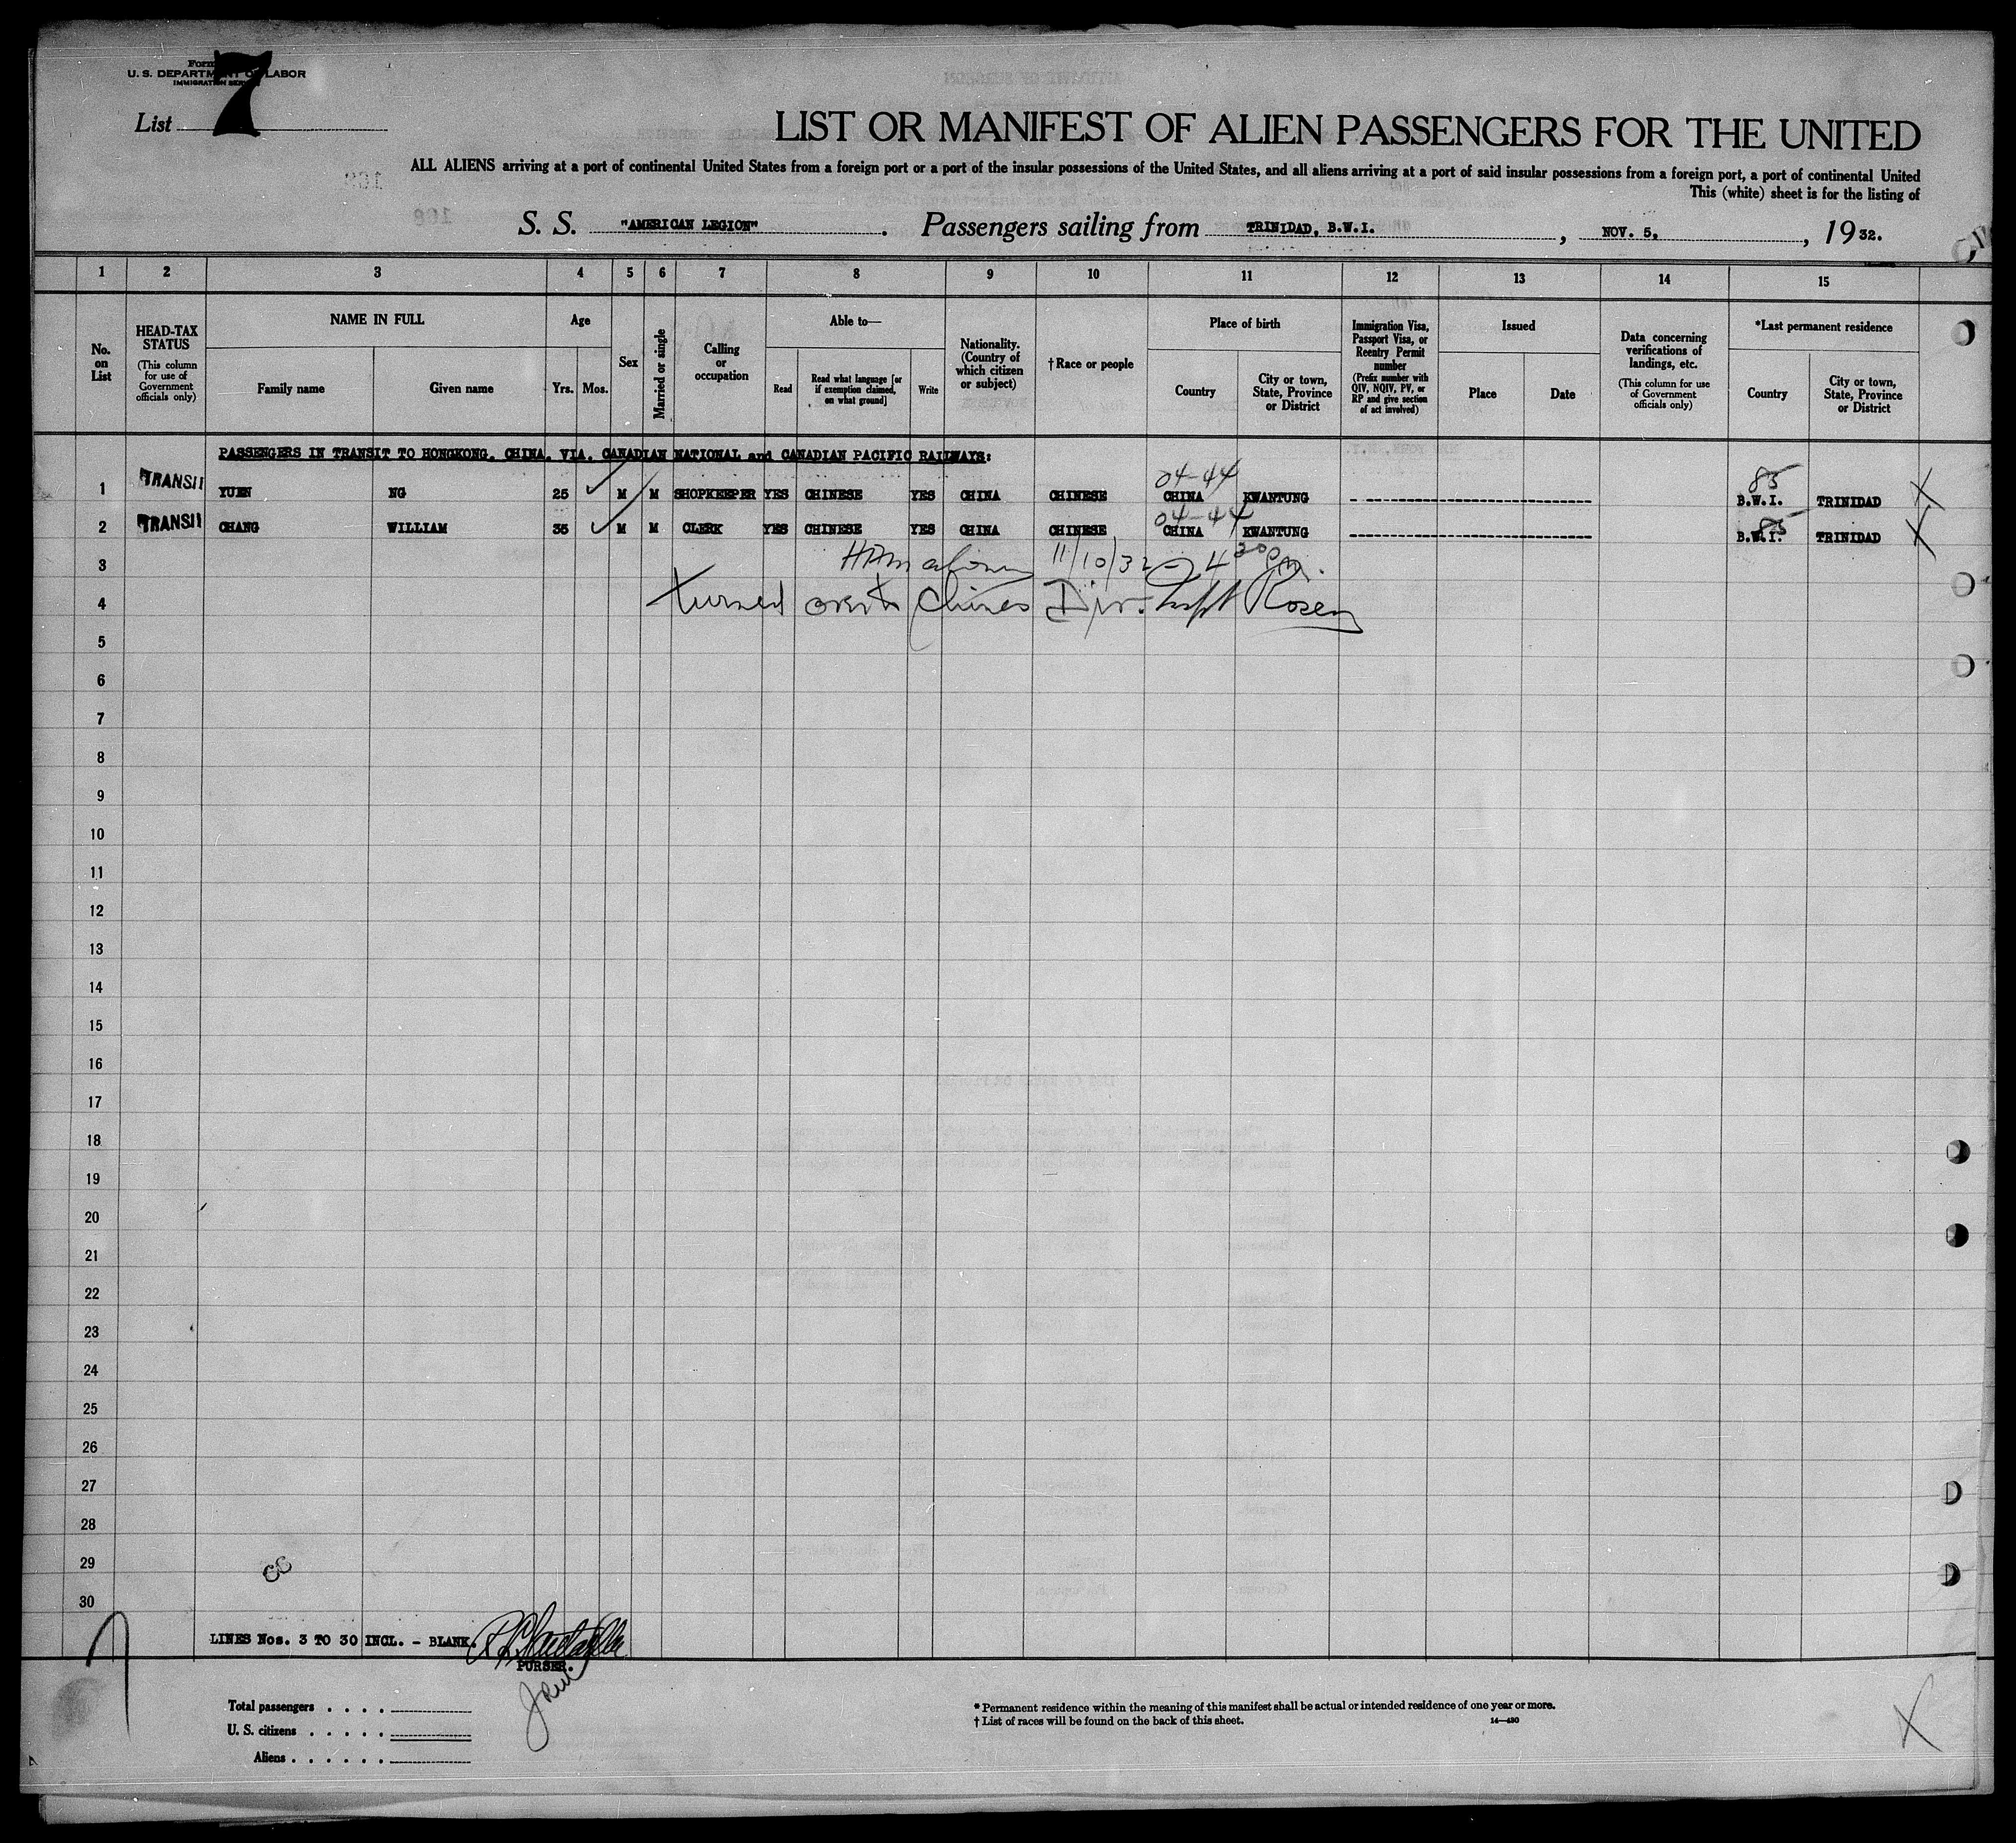 Form
U. S. DEPARTMENT OF LABOR
IMMIGRATION SERVICE
7
List
LIST OR MANIFEST OF ALIEN PASSENGERS FOR THE UNITED
ALL ALIENS arriving at a port of continental United States from a foreign port or a port of the insular possessions of the United States, and all aliens arriving at a port of said insular possessions from a foreign port, a port of continental United
This (white) sheet is for the listing of
S. S. "AMERICAN LEGION". Passengers sailing from TRINIDAD, B.W.I., NOV. 5, 1932.
1 2 3 4 5 6 7 8 9 10 11 12 13 14 15
No. on List
HEAD-TAX STATUS (This column for use of Government officials only)
NAME IN FULL
Family name Given name
Age
Yrs. Mos.
Sex
Married or single
Calling or occupation
Able to—
Read Read what language [or if exemption claimed, on what ground] Write
Nationality. (Country of which citizen or subject)
† Race or people
Place of birth
Country City or town, State, Province or District
Immigration Visa, Passport Visa, or Reentry Permit number (Prefix number with QIV, NQIV, PV, or RP and give section of act involved)
Issued
Place Date
Data concerning verifications of landings, etc. (This column for use of Government officials only)
*Last permanent residence
Country City or town, State, Province or District
PASSENGERS IN TRANSIT TO HONGKONG, CHINA, VIA, CANADIAN NATIONAL and CANADIAN PACIFIC RAILWAYS:
04-44 85
1 TRANSIT YUEN NG 25 M M SHOPKEEPER YES CHINESE YES CHINA CHINESE CHINA KWANTUNG B.W.I. TRINIDAD X
04-44 85
2 TRANSIT CHANG WILLIAM 35 M M CLERK YES CHINESE YES CHINA CHINESE CHINA KWANTUNG B.W.I. TRINIDAD X
3 11/10/32 4 30 pm.
4 turned over to Chinese Div. Inspt Rosen
5
6
7
8
9
10
11
12
13
14
15
16
17
18
19
20
21
22
23
24
25
26
27
28
29
30
LINES Nos. 3 TO 30 INCL. - BLANK.
PURSER.
Total passengers . . . .
U. S. citizens . . . . .
Aliens . . . . . .
* Permanent residence within the meaning of this manifest shall be actual or intended residence of one year or more.
† List of races will be found on the back of this sheet.
14—430
X